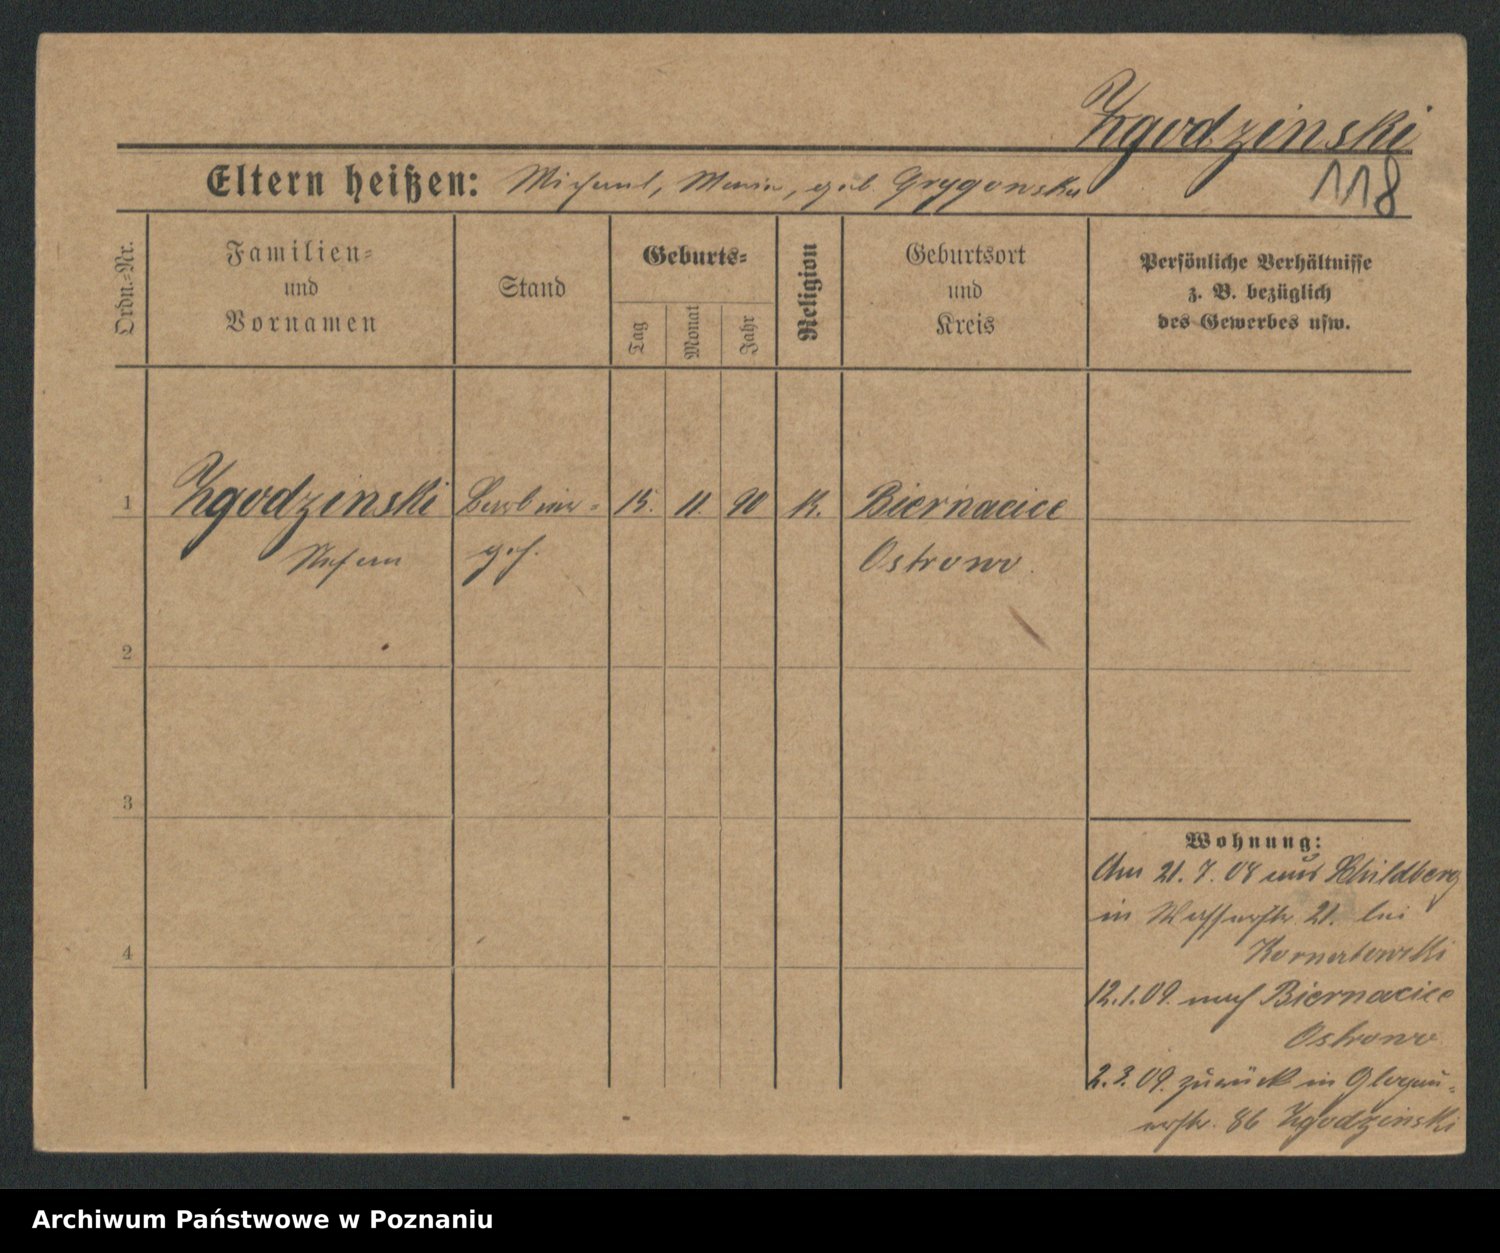 Zgodzinski
118
Eltern heißen: Michael, Maria, geb. Grygonska
Ordn.=Nr.
Familien=
und
Vornamen
Stand
Geburts=
Tag
Monat
Jahr
Religion
Geburtsort
und
Kreis
Persönliche Verhältnisse
z. B. bezüglich
des Gewerbes usw.
1 Zgodzinski Barbier= 15. 11. 90 K. Biernacice
geh. Ostrowo.
2
3
4
Wohnung:
Am 21. 7. 08 aus Schildberg
in Wasserstr. 21. bei
12.1.09. nach Biernacice
Ostrowo
2.3.09. zurück in Glogau=
erstr. 86 Zgodzinski
Archiwum Państwowe w Poznaniu